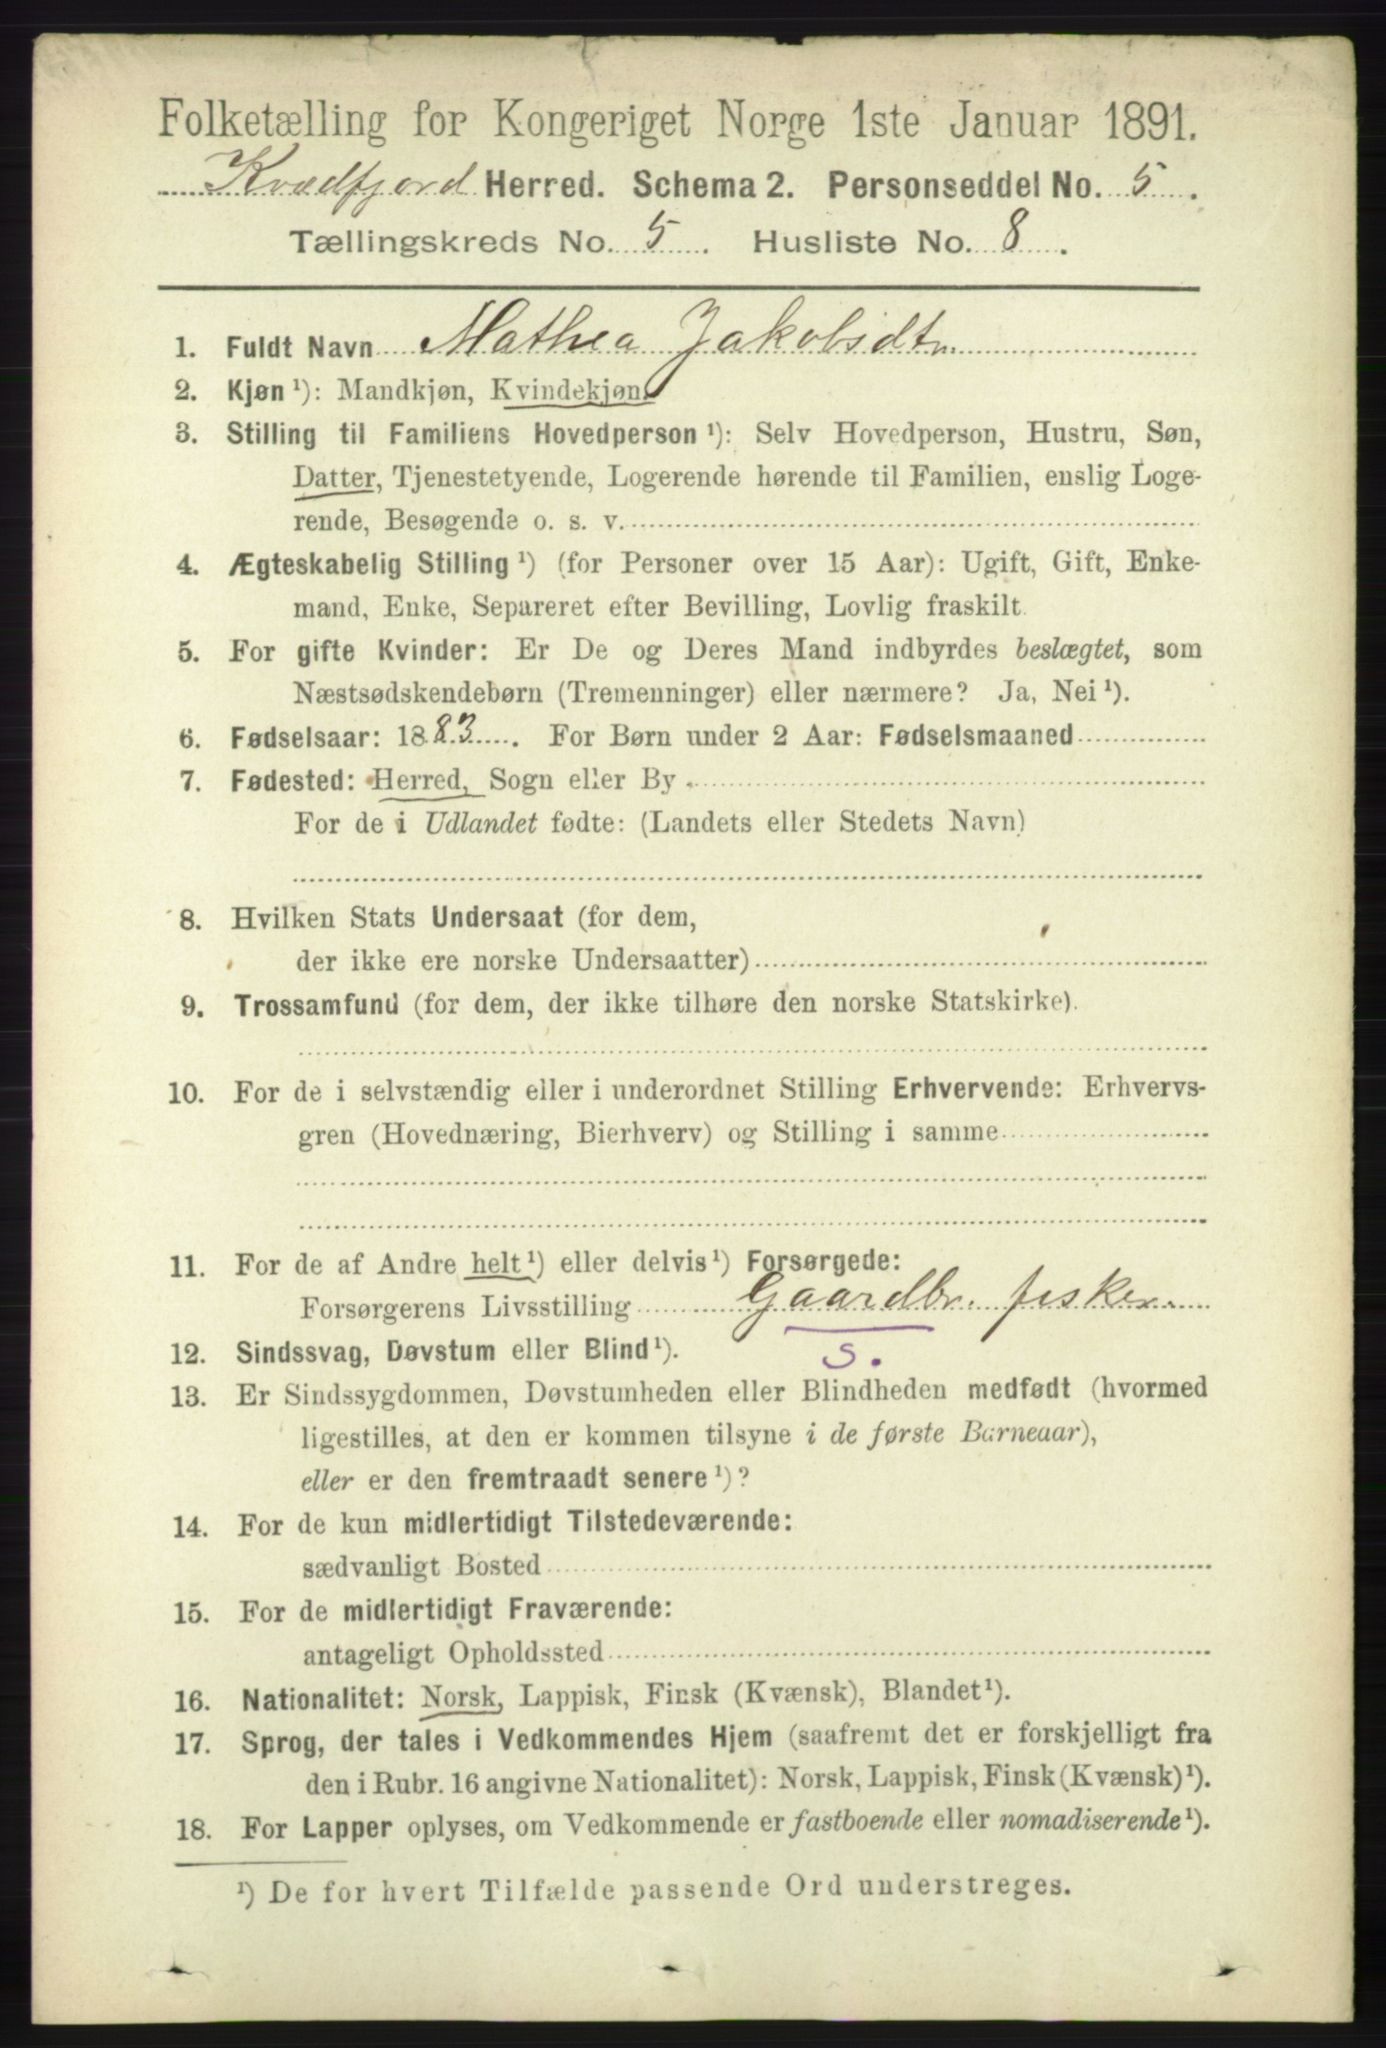 Folketælling for Kongeriget Norge 1ste Januar 1891.
Kvædfjord Herred. Schema 2. Personseddel No. 5.
Tællingskreds No. 5. Husliste No. 8.
1. Fuldt Navn Mathea Jakobsdtr.
2. Kjøn ¹): Mandkjøn, Kvindekjøn.
3. Stilling til Familiens Hovedperson ¹): Selv Hovedperson, Hustru, Søn,
Datter, Tjenestetyende, Logerende hørende til Familien, enslig Loge-
rende, Besøgende o. s. v.
4. Ægteskabelig Stilling ¹) (for Personer over 15 Aar): Ugift, Gift, Enke-
mand, Enke, Separeret efter Bevilling, Lovlig fraskilt.
5. For gifte Kvinder: Er De og Deres Mand indbyrdes beslægtet, som
Næstsødskendebørn (Tremenninger) eller nærmere? Ja, Nei ¹).
6. Fødselsaar: 1883. For Børn under 2 Aar: Fødselsmaaned
7. Fødested: Herred, Sogn eller By
For de i Udlandet fødte: (Landets eller Stedets Navn)
8. Hvilken Stats Undersaat (for dem,
der ikke ere norske Undersaatter)
9. Trossamfund (for dem, der ikke tilhøre den norske Statskirke).
10. For de i selvstændig eller i underordnet Stilling Erhvervende: Erhvervs-
gren (Hovednæring, Bierhverv) og Stilling i samme
11. For de af Andre helt ¹) eller delvis ¹) Forsørgede:
Forsørgerens Livsstilling Gaardbr. fisker.
12. Sindssvag, Døvstum eller Blind ¹). S.
13. Er Sindssygdommen, Døvstumheden eller Blindheden medfødt (hvormed
ligestilles, at den er kommen tilsyne i de første Barneaar),
eller er den fremtraadt senere ¹)?
14. For de kun midlertidigt Tilstedeværende:
sædvanligt Bosted
15. For de midlertidigt Fraværende:
antageligt Opholdssted
16. Nationalitet: Norsk, Lappisk, Finsk (Kvænsk), Blandet ¹).
17. Sprog, der tales i Vedkommendes Hjem (saafremt det er forskjelligt fra
den i Rubr. 16 angivne Nationalitet): Norsk, Lappisk, Finsk (Kvænsk) ¹).
18. For Lapper oplyses, om Vedkommende er fastboende eller nomadiserende ¹).
¹) De for hvert Tilfælde passende Ord understreges.